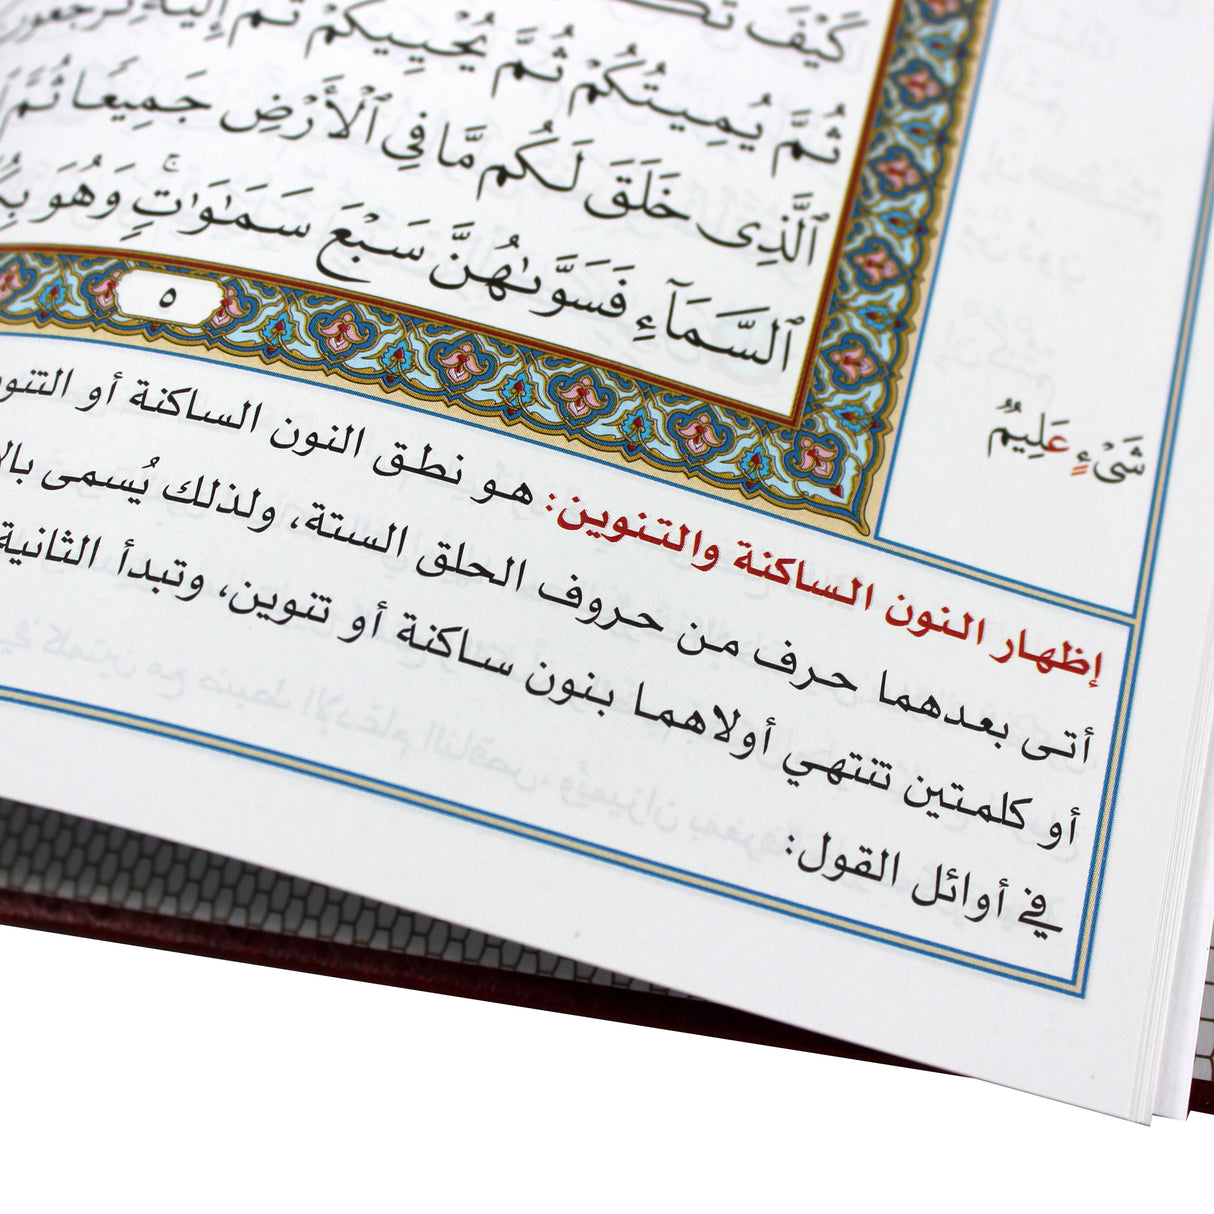 كَيْفَ
ثُمَّ يُمِيتُكُمْ ثُمَّ يُحْيِيكُمْ ثُمَّ إِلَيْهِ تُرْجَعُونَ
ٱلَّذِى خَلَقَ لَكُم مَّا فِى ٱلْأَرْضِ جَمِيعًا ثُمَّ
ٱلسَّمَآءِ فَسَوَّىٰهُنَّ سَبْعَ سَمَٰوَٰتٍۚ وَهُوَ
٥
شَىْءٍ عَلِيمٌ
إظهار النون الساكنة والتنوين: هو نطق النون الساكنة أو
أتى بعدهما حرف من حروف الحلق الستة، ولذلك يُسمى
أو كلمتين تنتهي أولاهما بنون ساكنة أو تنوين، وتبدأ الثانية
في أوائل القول: